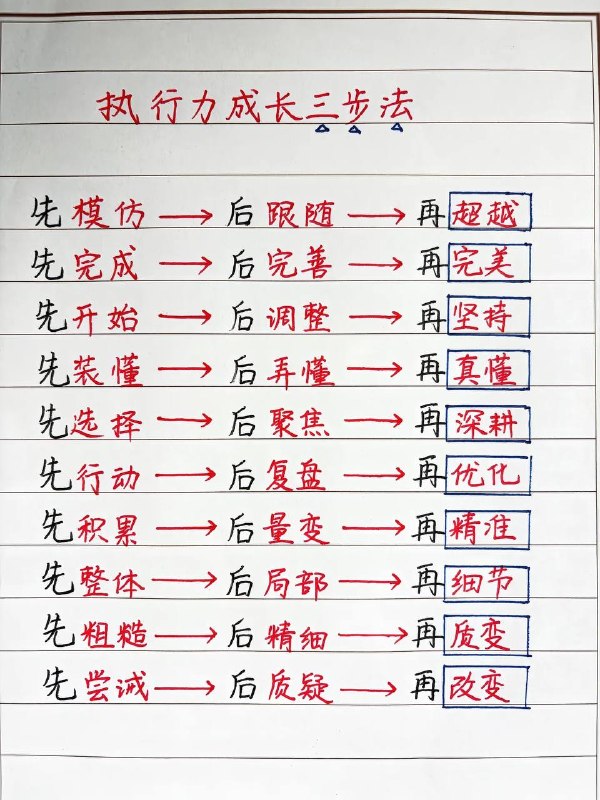 执行力成长三步法
先模仿→后跟随→再超越
先完成→后完善→再完美
先开始→后调整→再坚持
先装懂→后弄懂→再真懂
先选择→后聚焦→再深耕
先行动→后复盘→再优化
先积累→后量变→再精准
先整体→后局部→再细节
先粗糙→后精细→再质变
先尝诫→后质疑→再改变